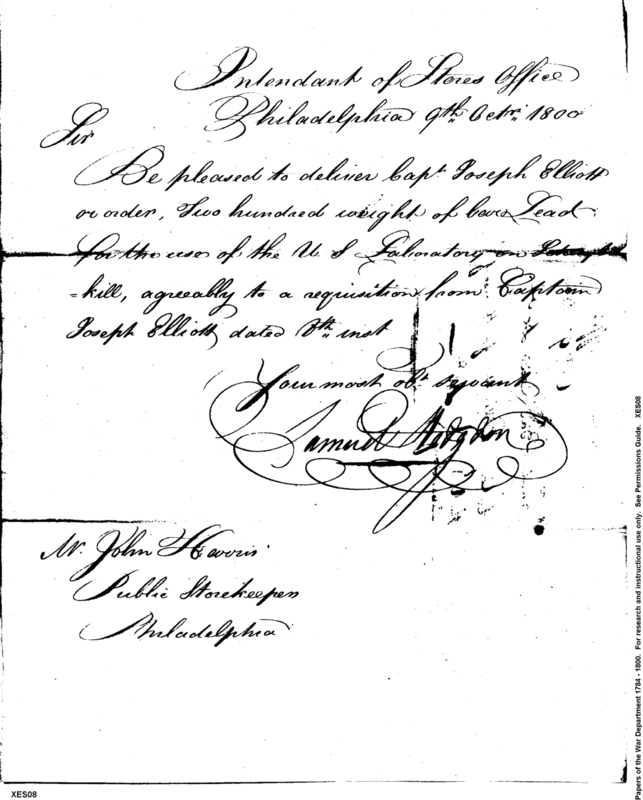 Intendant of Stores Office
Philadelphia 9th Octr. 1800
Sir
Be pleased to deliver Capt. Joseph Elliott
or order, Two hundred weight of bar Lead
for the use of the U S Laboratory on
=kill, agreeably to a requisition from Captain
Joseph Elliott, dated 8th inst
Your most obt servant
Samuel Hodgdon
Mr. John Harris
Public Storekeeper
Philadelphia
XES08
Papers of the War Department 1784 - 1800. For research and instructional use only. See Permissions Guide. XES08